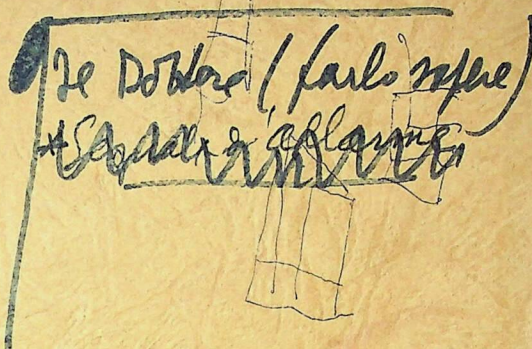 Il Dottore (farlo sapere)
Segnale d'allarme